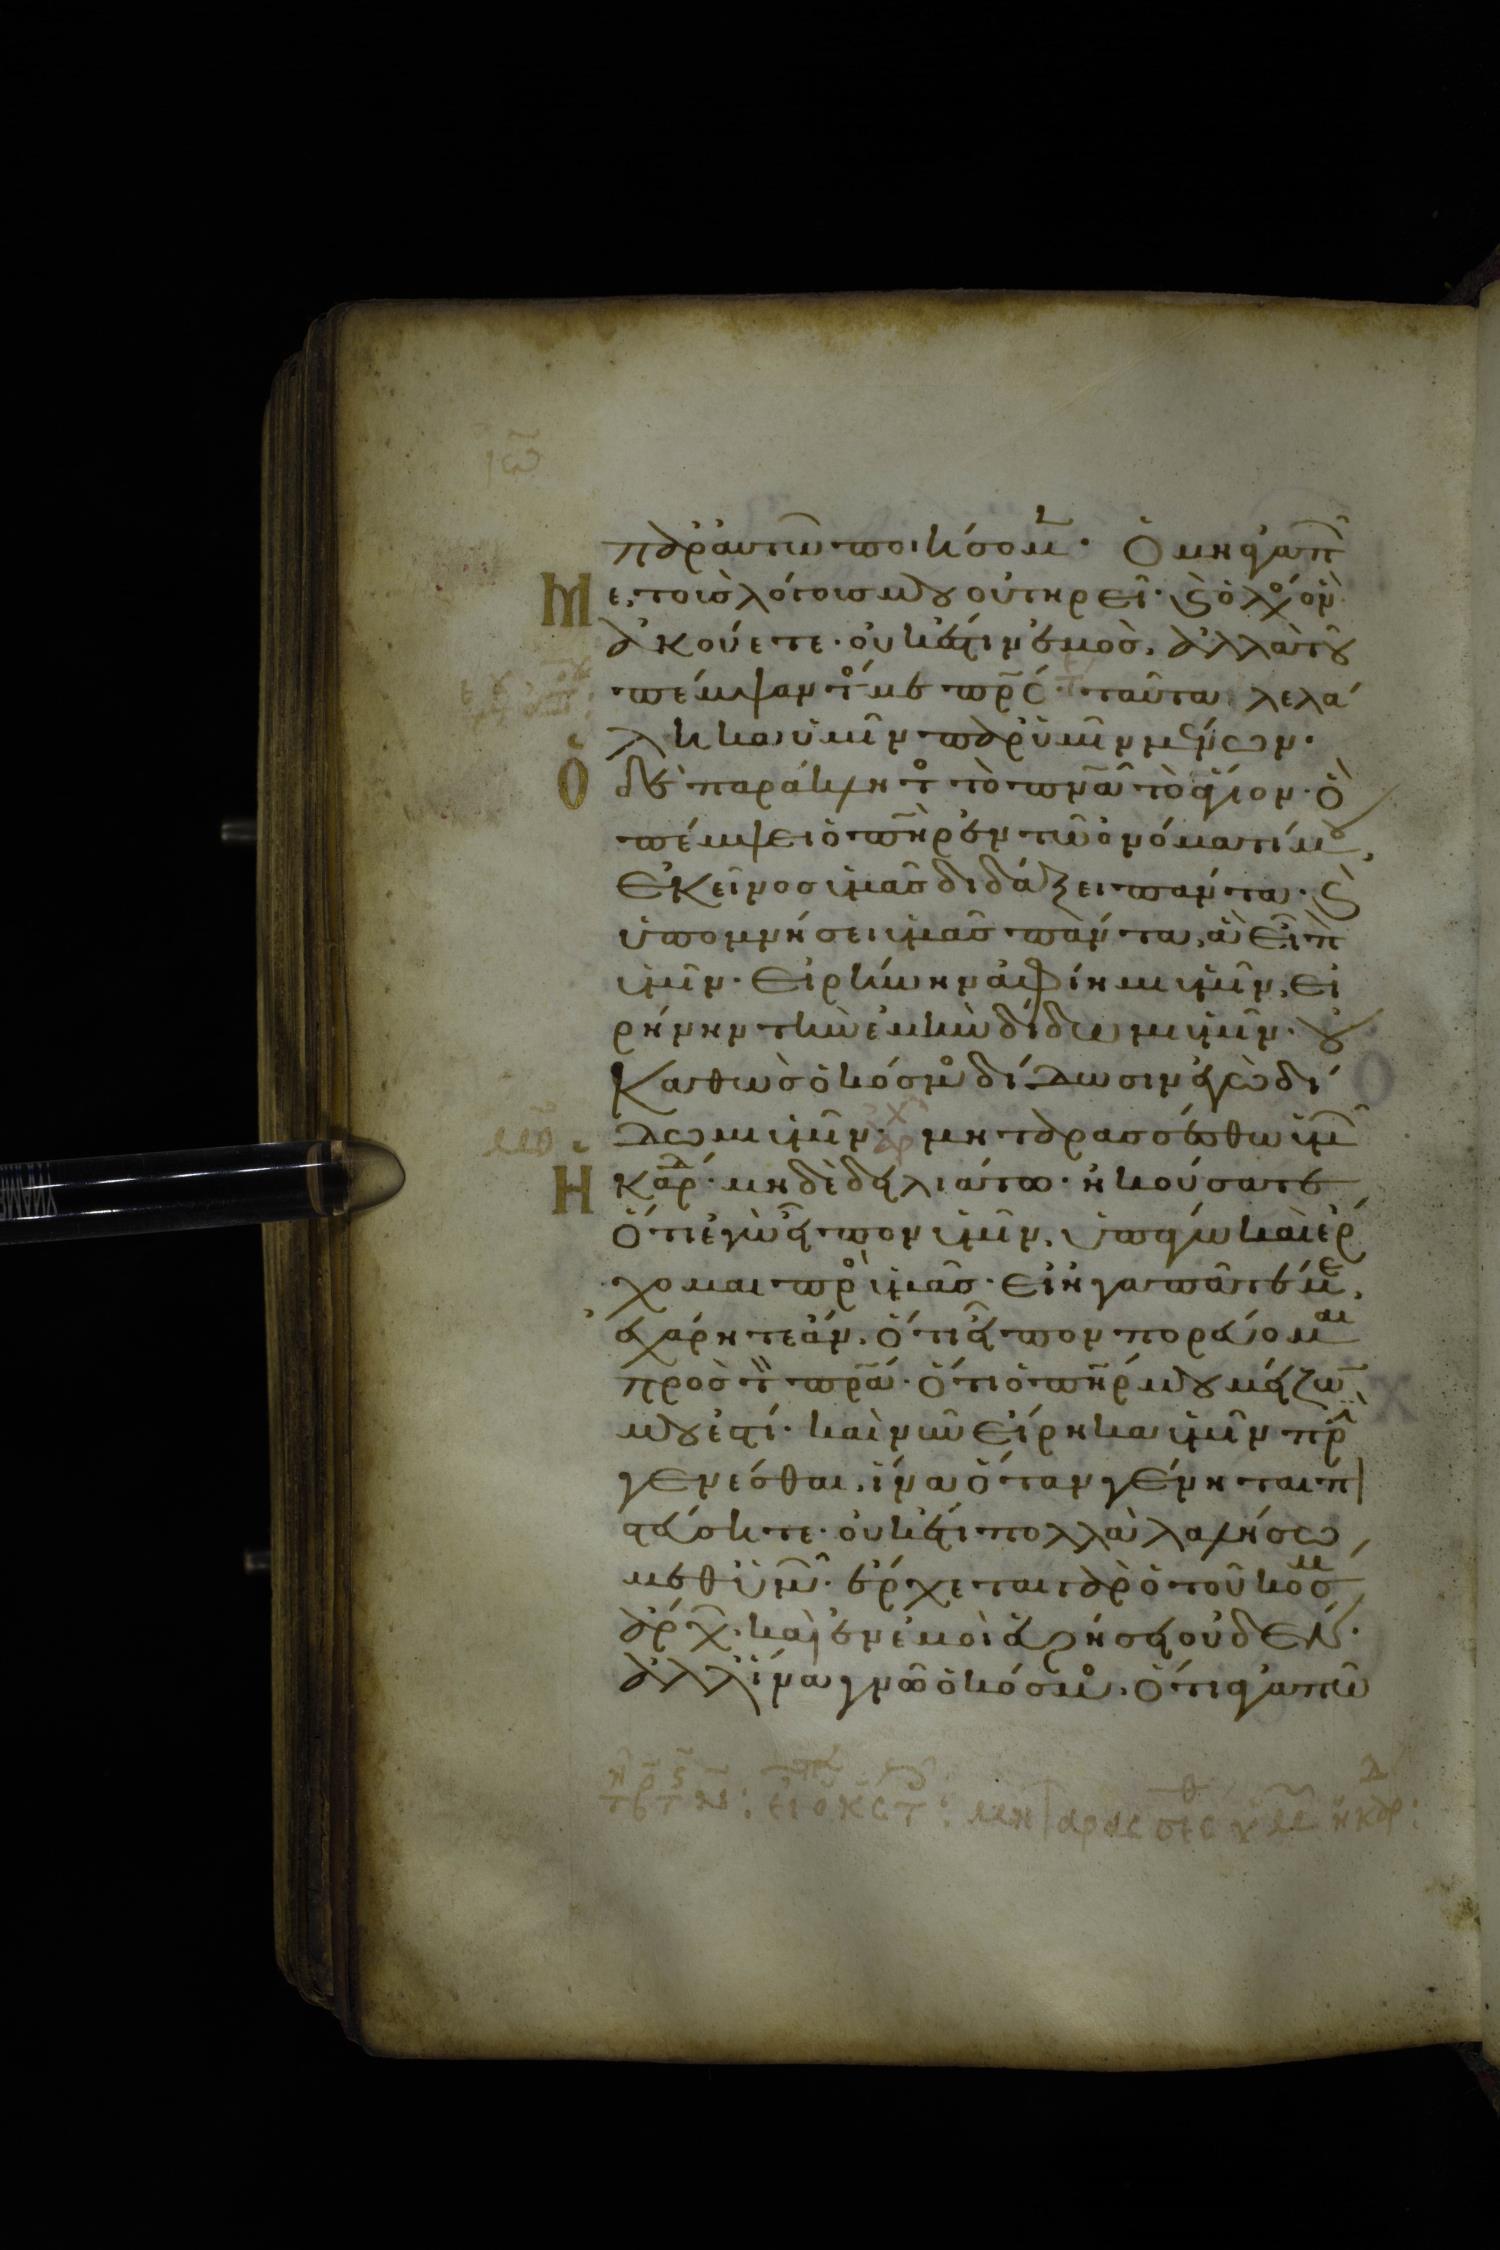 παρ αυτῶ ποιήσομ· Ὁ μὴ ἀγαπῶν
με, τοὺς λόγους μου οὐ τηρεῖ· καὶ ὁ λόγος ὃν
ἀκούετε· οὐκ ἔστιν ἐμὸς, ἀλλὰ τοῦ
πέμψαντός με πρς· ταῦτα λελά
ληκα ὑμῖν παρ ὑμῖν μένων·
Ὁ δὲ παράκλητος τὸ πνα τὸ ἅγιον· ὃ
πέμψει ὁ πηρ ἐν τῶ ὀνόματί μου,
ἐκεῖνος ὑμᾶς διδάξει πάντα· καὶ
ὑπομνήσει ὑμᾶς πάντα, ἃ εἶπον
ὑμῖν· εἰρήνην ἀφίημι ὑμῖν, εἰ
ρήνην τὴν ἐμὴν δίδωμι ὑμῖν· οὐ
καθὼς ὁ κόσμος δίδωσιν ἐγὼ δί
δωμι ὑμῖν· μὴ ταρασσέσθω ὑμῶν ἡ
καρδ· μηδὲ δειλιάτω· ἠκούσατε
ὅτι ἐγὼ εἶπον ὑμῖν, ὑπάγω καὶ ἔρ
χομαι πρὸς ὑμᾶς· εἰ ἠγαπᾶτέ με,
ἐχάρητε ἄν, ὅτι εἶπον πορεύομαι
πρὸς τὸν πρα· ὅτι ὁ πηρ μου μείζων
μου ἐστί· καὶ νῦν εἴρηκα ὑμῖν πρὶν
γενέσθαι, ἵνα ὅταν γένηται πι
στεύσητε· οὐκ ἔτι πολλὰ λαλήσω
μεθ ὑμῶν· ἔρχεται γὰρ ὁ τοῦ κόσμ
ἄρχων· καὶ ἐν ἐμοὶ εὑρήσει οὐδέν·
ἀλλ ἵνα γνῶ ὁ κόσμος, ὅτι ἀγαπῶ